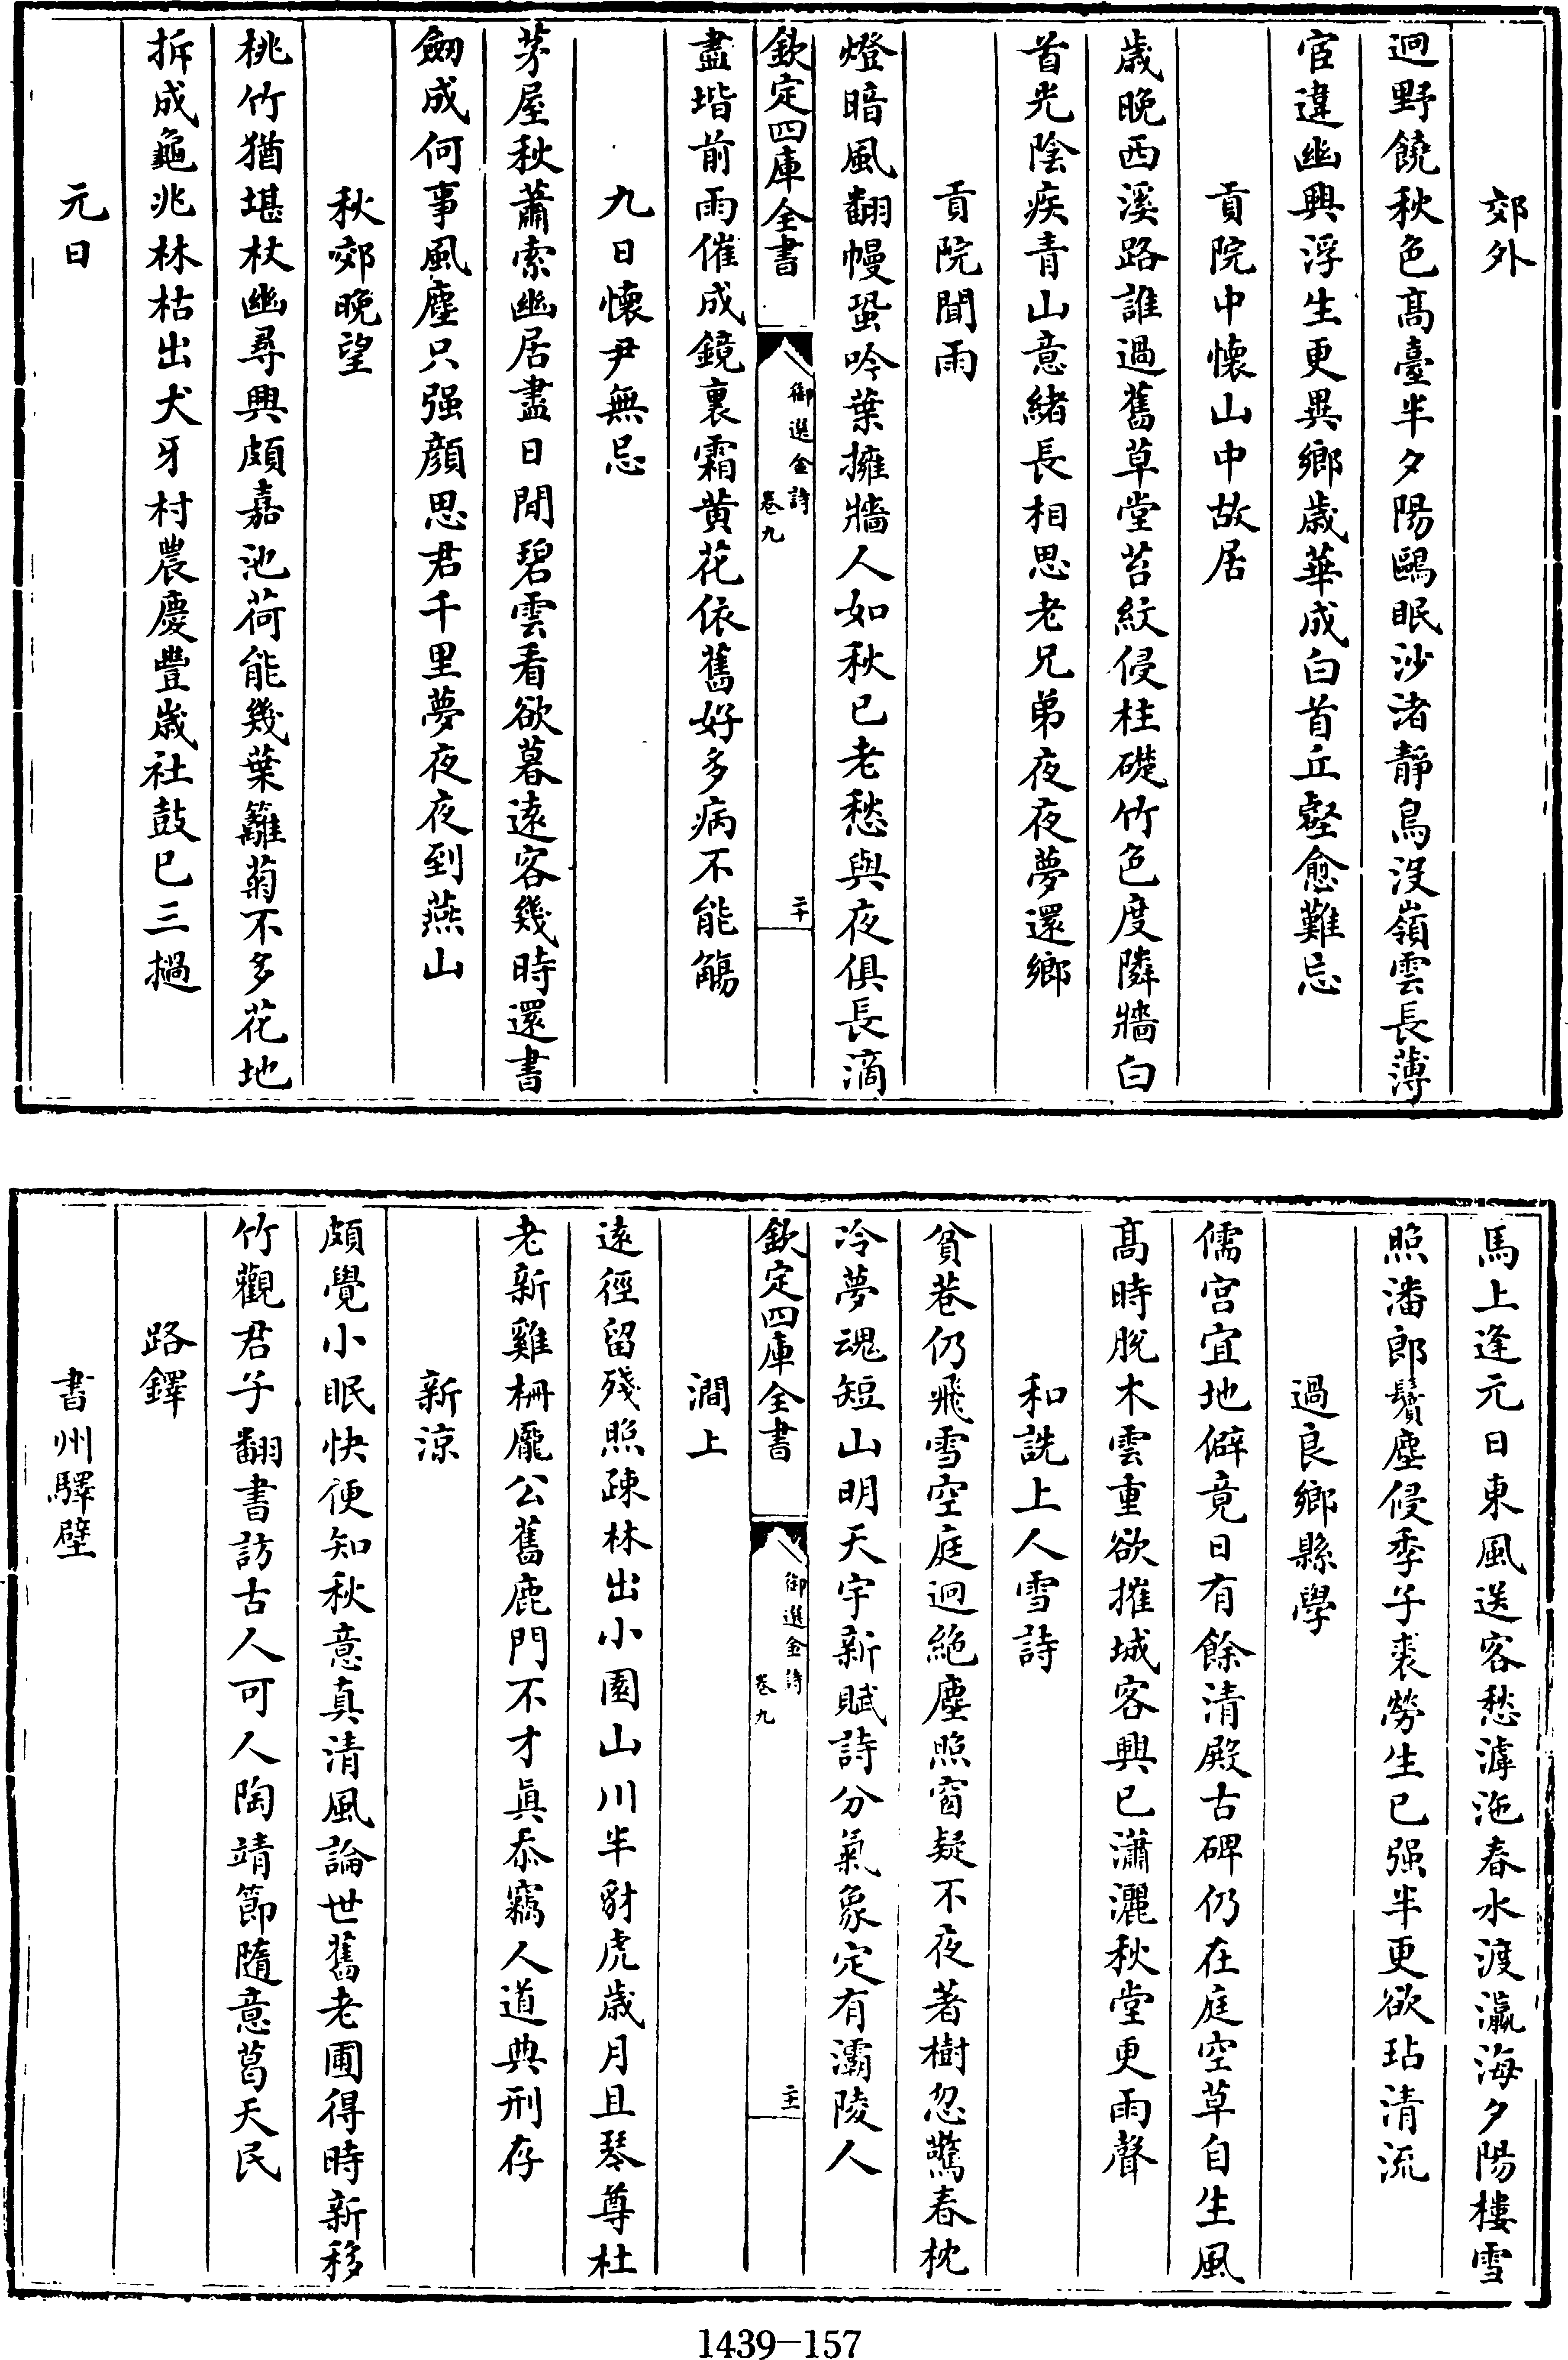 郊外
迥野饒秋色高臺半夕陽鷗眠沙渚靜鳥沒嶺雲長薄
宦違幽興浮生更異鄉歲華成白首丘壑愈難忘
貢院中懷山中故居
歲晚西溪路誰過舊草堂苔紋侵柱礎竹色度隣牆白
首光陰疾青山意緒長相思老兄弟夜夜夢還鄉
貢院聞雨
燈暗風翻幔蛩吟葉擁牆人如秋已老愁與夜俱長滴
欽定四庫全書
御選金詩
卷九
二十
盡堦前雨催成鏡裏霜黃花依舊好多病不能觴
九日懷尹無忌
茅屋秋蕭索幽居盡日閒碧雲看欲暮遠客幾時還書
劒成何事風塵只强顏思君千里夢夜夜到燕山
秋郊晚望
桃竹猶堪杖幽尋興頗嘉池荷能幾葉籬菊不多花地
拆成龜兆林枯出犬牙村農慶豐歲社鼓已三撾
元日
馬上逢元日東風送客愁滹沲春水渡瀛海夕陽樓雪
照潘郎鬢塵侵季子裘勞生已强半更欲玷清流
過良鄉縣學
儒宫宜地僻竟日有餘清殿古碑仍在庭空草自生風
高時脫木雲重欲摧城客興已瀟灑秋堂更雨聲
和詵上人雪詩
貧巷仍飛雪空庭迥絕塵照窗疑不夜著樹忽驚春枕
冷夢魂短山明天宇新賦詩分氣象定有灞陵人
欽定四庫全書
御選金詩
卷九
二十一
澗上
遠徑留殘照疎林出小園山川半豺虎歲月且琴尊杜
老新雞柵龐公舊鹿門不才眞忝竊人道典刑存
新涼
頗覺小眠快便知秋意真清風論世舊老圃得時新移
竹觀君子翻書訪古人可人陶靖節隨意葛天民
路鐸
書州驛壁
1439-157